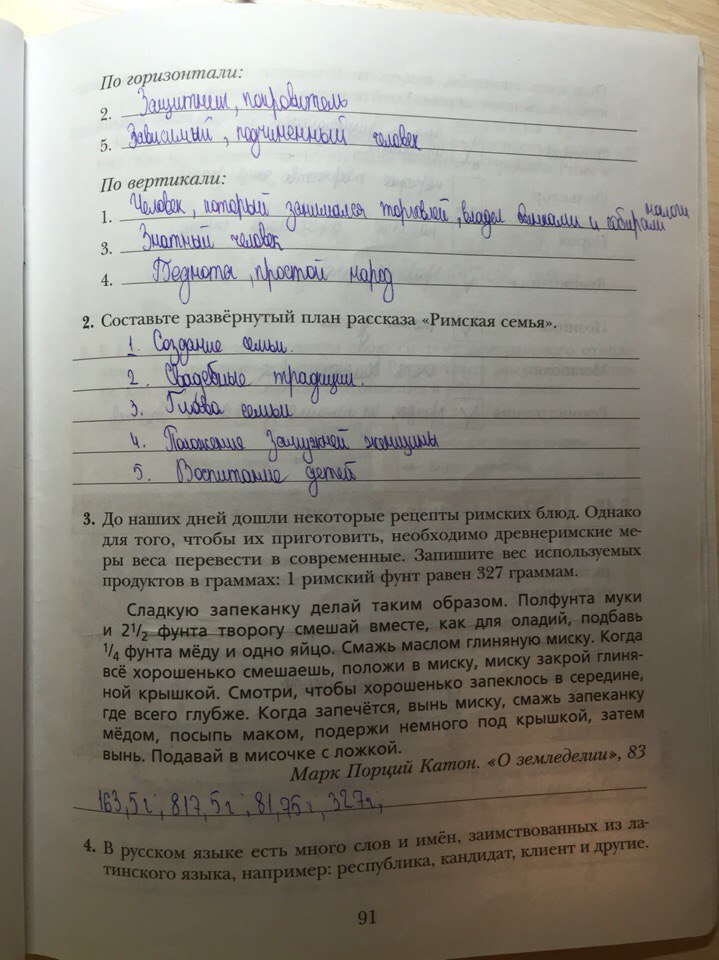 По горизонтали:
2. Защитник, покровитель
5. Зависимый, подчиненный человек
По вертикали:
1. Человек, который занимался торговлей, владел банками и собирали налоги
3. Знатный человек
4. Беднота, простой народ
2. Составьте развёрнутый план рассказа «Римская семья».
1. Создание семьи.
2. Свадебные традиции.
3. Глава семьи
4. Положение замужней женщины
5. Воспитание детей
3. До наших дней дошли некоторые рецепты римских блюд. Однако
для того, чтобы их приготовить, необходимо древнеримские ме-
ры веса перевести в современные. Запишите вес используемых
продуктов в граммах: 1 римский фунт равен 327 граммам.
Сладкую запеканку делай таким образом. Полфунта муки
и 2 1/2 фунта творогу смешай вместе, как для оладий, подбавь
1/4 фунта мёду и одно яйцо. Смажь маслом глиняную миску. Когда
всё хорошенько смешаешь, положи в миску, миску закрой глиня-
ной крышкой. Смотри, чтобы хорошенько запеклось в середине,
где всего глубже. Когда запечётся, вынь миску, смажь запеканку
мёдом, посыпь маком, подержи немного под крышкой, затем
вынь. Подавай в мисочке с ложкой.
Марк Порций Катон. «О земледелии», 83
163,5г; 817,5г; 81,75г; 327г;
4. В русском языке есть много слов и имён, заимствованных из ла-
тинского языка, например: республика, кандидат, клиент и другие.
91